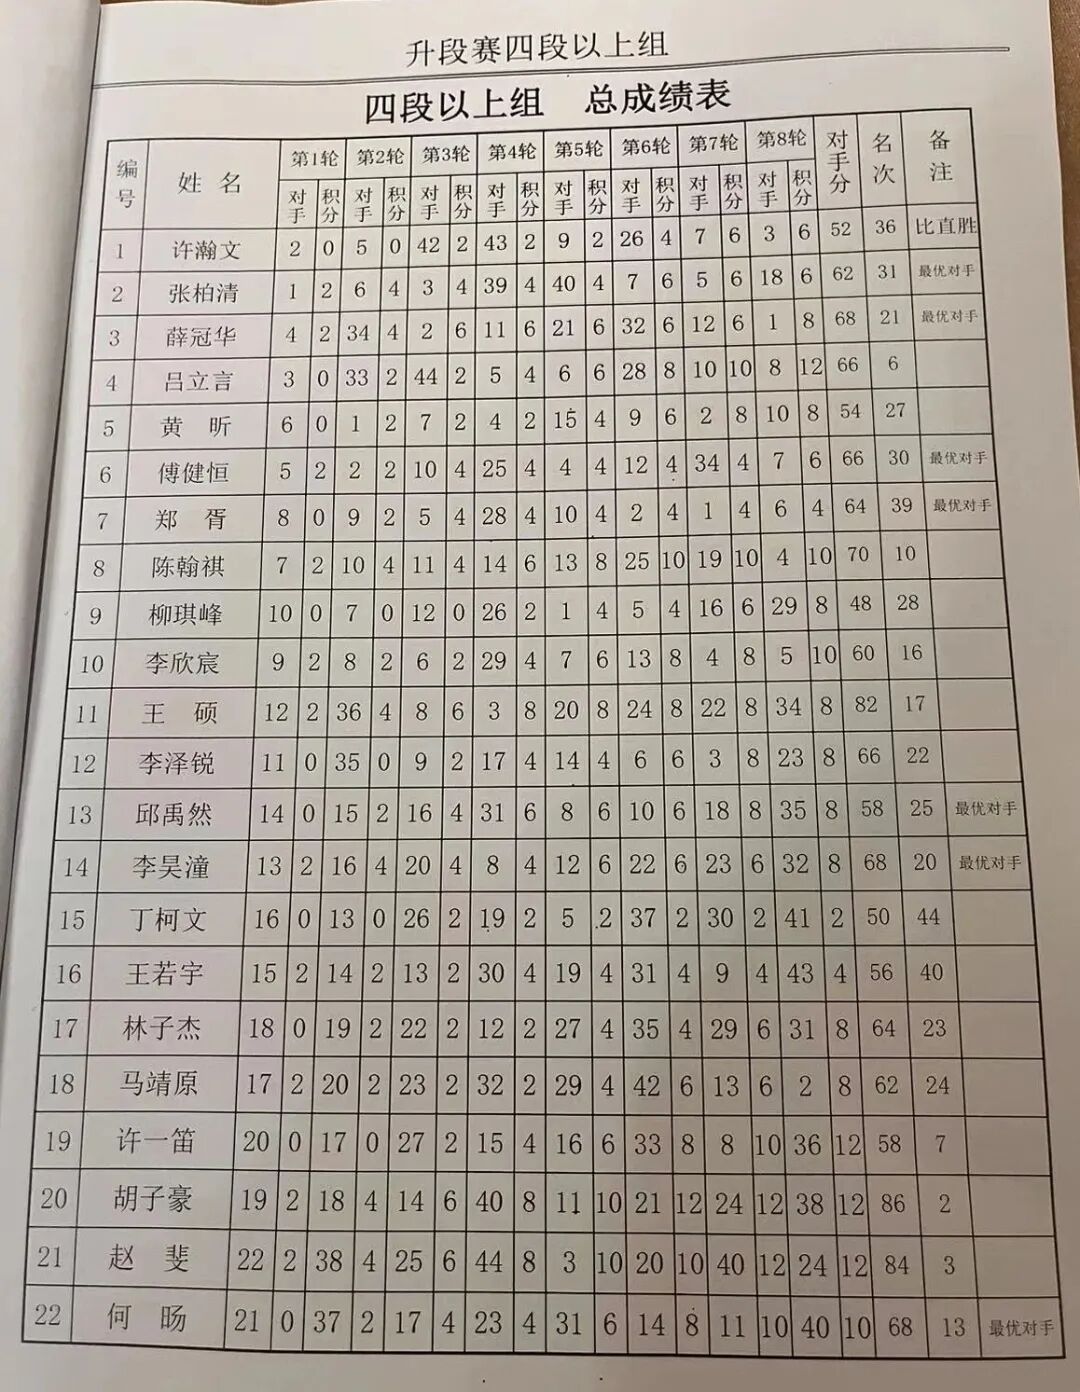 升段赛四段以上组
四段以上组 总成绩表
编号 姓名 第1轮 第2轮 第3轮 第4轮 第5轮 第6轮 第7轮 第8轮 对手分 名次 备注
对手 积分 对手 积分 对手 积分 对手 积分 对手 积分 对手 积分 对手 积分 对手 积分
1 许瀚文 2 0 5 0 42 2 43 2 9 2 26 4 7 6 3 6 52 36 比直胜
2 张柏清 1 2 6 4 3 4 39 4 40 4 7 6 5 6 18 6 62 31 最优对手
3 薛冠华 4 2 34 4 2 6 11 6 21 6 32 6 12 6 1 8 68 21 最优对手
4 吕立言 3 0 33 2 44 2 5 4 6 6 28 8 10 10 8 12 66 6
5 黄昕 6 0 1 2 7 2 4 2 15 4 9 6 2 8 10 8 54 27
6 傅健恒 5 2 2 2 10 4 25 4 4 4 12 4 34 4 7 6 66 30 最优对手
7 郑胥 8 0 9 2 5 4 28 4 10 4 2 4 1 4 6 4 64 39 最优对手
8 陈翰祺 7 2 10 4 11 4 14 6 13 8 25 10 19 10 4 10 70 10
9 柳琪峰 10 0 7 0 12 0 26 2 1 4 5 4 16 6 29 8 48 28
10 李欣宸 9 2 8 2 6 2 29 4 7 6 13 8 4 8 5 10 60 16
11 王硕 12 2 36 4 8 6 3 8 20 8 24 8 22 8 34 8 82 17
12 李泽锐 11 0 35 0 9 2 17 4 14 4 6 6 3 8 23 8 66 22
13 邱禹然 14 0 15 2 16 4 31 6 8 6 10 6 18 8 35 8 58 25 最优对手
14 李昊潼 13 2 16 4 20 4 8 4 12 6 22 6 23 6 32 8 68 20 最优对手
15 丁柯文 16 0 13 0 26 2 19 2 5 2 37 2 30 2 41 2 50 44
16 王若宇 15 2 14 2 13 2 30 4 19 4 31 4 9 4 43 4 56 40
17 林子杰 18 0 19 2 22 2 12 2 27 4 35 4 29 6 31 8 64 23
18 马靖原 17 2 20 2 23 2 32 2 29 4 42 6 13 6 2 8 62 24
19 许一笛 20 0 17 0 27 2 15 4 16 6 33 8 8 10 36 12 58 7
20 胡子豪 19 2 18 4 14 6 40 8 11 10 21 12 24 12 38 12 86 2
21 赵斐 22 2 38 4 25 6 44 8 3 10 20 10 40 12 24 12 84 3
22 何旸 21 0 37 2 17 4 23 4 31 6 14 8 11 10 40 10 68 13 最优对手